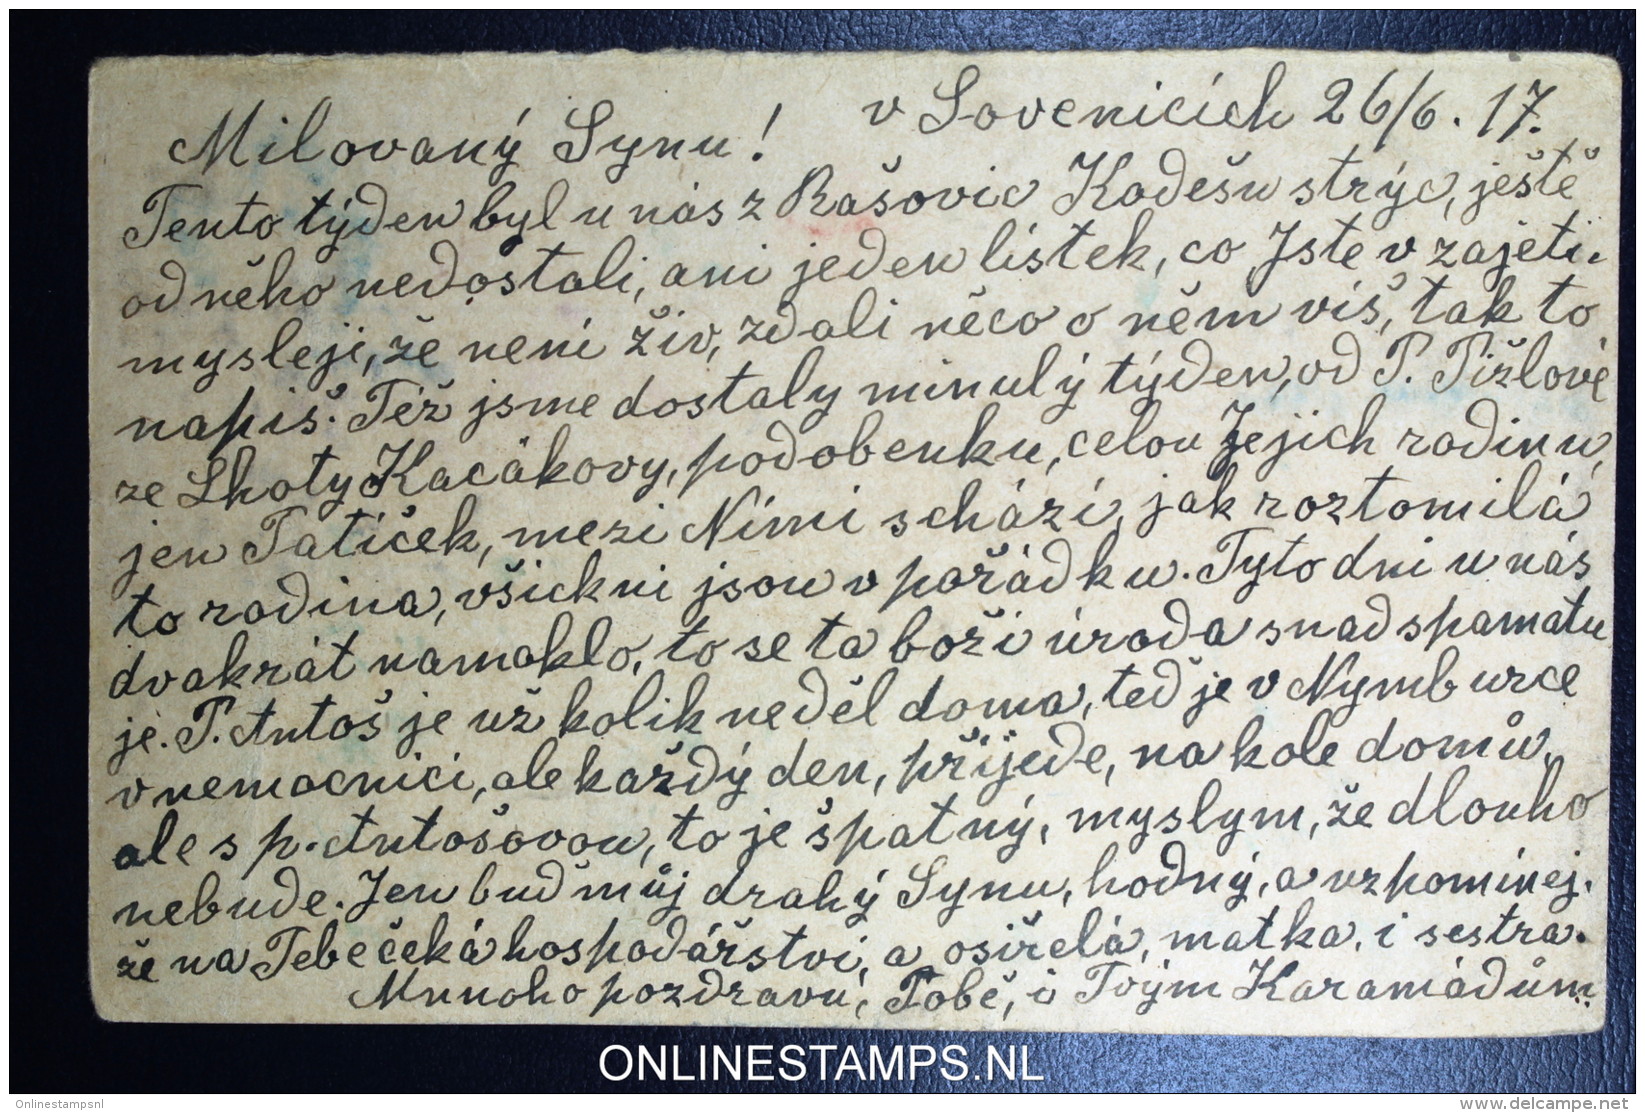 v Sovenicích 26/6. 17.
Milovaný Synu!
Tento týden byl u nás z Rašovic Kodešu strýc, ještě
od něho nedostali, ani jeden lístek, co Jste v zajetí.
mysleji, že není živ, zdali něco o něm víš, tak to
napiš. Též jsme dostaly minulý týden, od P. Pižlové
ze Lhoty Kacákovy, podobenku, celou Jejich rodinu,
jen Tatíček, mezi Nimi schází, jak roztomilá
to rodina, všickni jsou v pořádku. Tyto dni u nás
dvakrát namoklo, to se ta boži úroda snad spamatu
je. P. Antoš je už kolik neděl doma, teď je v Nymburce
v nemocnici, ale každý den, přijede, na kole domů,
ale s p. Antošovou, to je špatný, myslym, že dlouho
nebude. Jen buď můj drahý Synu, hodný, a vzpomínej.
že na Tebe čeká hospodářství, a osiřelá, matka, i sestra.
Mnnoho pozdravů, Tobě, i Tvým Karamádům.
ONLINESTAMPS.NL
Onlinestampsnl
www.delcampe.net